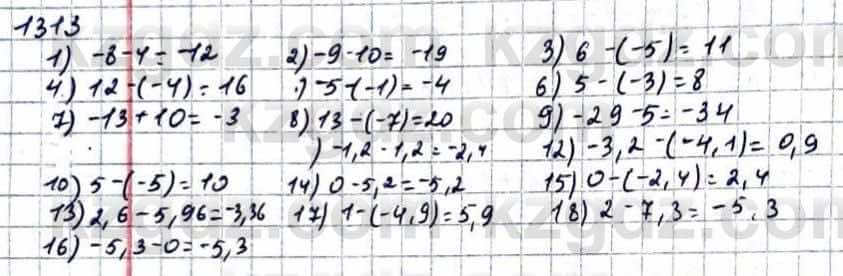 1313
1) -8-4= -12 2) -9-10= -19 3) 6 -(-5)= 11
4) 12-(-4)= 16 ) -5-(-1)= -4 6) 5 -(-3)=8
7) -13+10= -3 8) 13-(-7)=20 9) -29-5= -34
) -1,2-1,2=-2,4 12) -3,2 -(-4,1)= 0,9
10) 5-(-5)=10 14) 0-5,2=-5,2 15) 0-(-2,4)=2,4
13) 2,6-5,96=-3,36 17) 1-(-4,9)=5,9 18) 2-7,3= -5,3
16) -5,3-0=-5,3
kzgdz.com